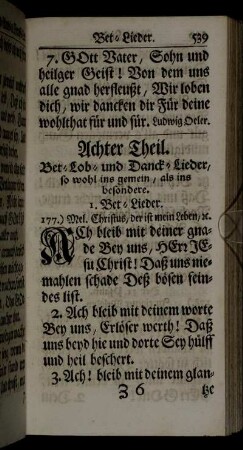 Bet-Lieder. 539
7. GOtt Vater, Sohn und
heilger Geist! Von dem uns
alle gnad herfleußt, Wir loben
dich, wir dancken dir Für deine
wohlthat für und für. Ludwig Oeler.
Achter Theil.
Bet-Lob- und Danck-Lieder,
so wohl ins gemein, als ins
besondere.
1. Bet-Lieder.
177.) Mel. Christus, der ist mein Leben, ꝛc.
ACh bleib mit deiner gna-
de Bey uns, HErr JE-
su Christ! Daß uns nie-
mahlen schade Deß bösen fein-
des list.
2. Ach bleib mit deinem worte
Bey uns, Erlöser werth! Daß
uns beyd hie und dorte Sey hülff
und heil beschert.
3. Ach! bleib mit deinem glan-
Z 6 tze